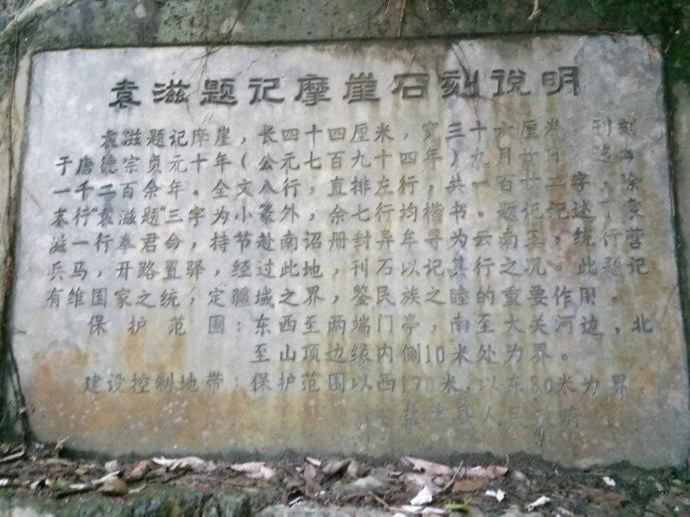 袁滋题记摩崖石刻说明
袁滋题记摩崖，长四十四厘米，宽三十六厘米，刊刻
于唐德宗贞元十年（公元七百九十四年）九月廿日，迄今
一千二百余年。全文八行，直排左行，共一百廿二字，除
末行“袁滋题”三字为小篆外，余七行均楷书。题记记述了袁
滋一行奉君命，持节赴南诏册封异牟寻为云南王，统行营
兵马，开路置驿，经过此地，刊石以记其行之况。此题记
有维国家之统，定疆域之界，鉴民族之睦的重要作用。
保护范围：东西至两端门亭，南至大关河边，北
至山顶边缘内侧10米处为界。
建设控制地带：保护范围以西170米，以东80米为界
盐津县人民政府